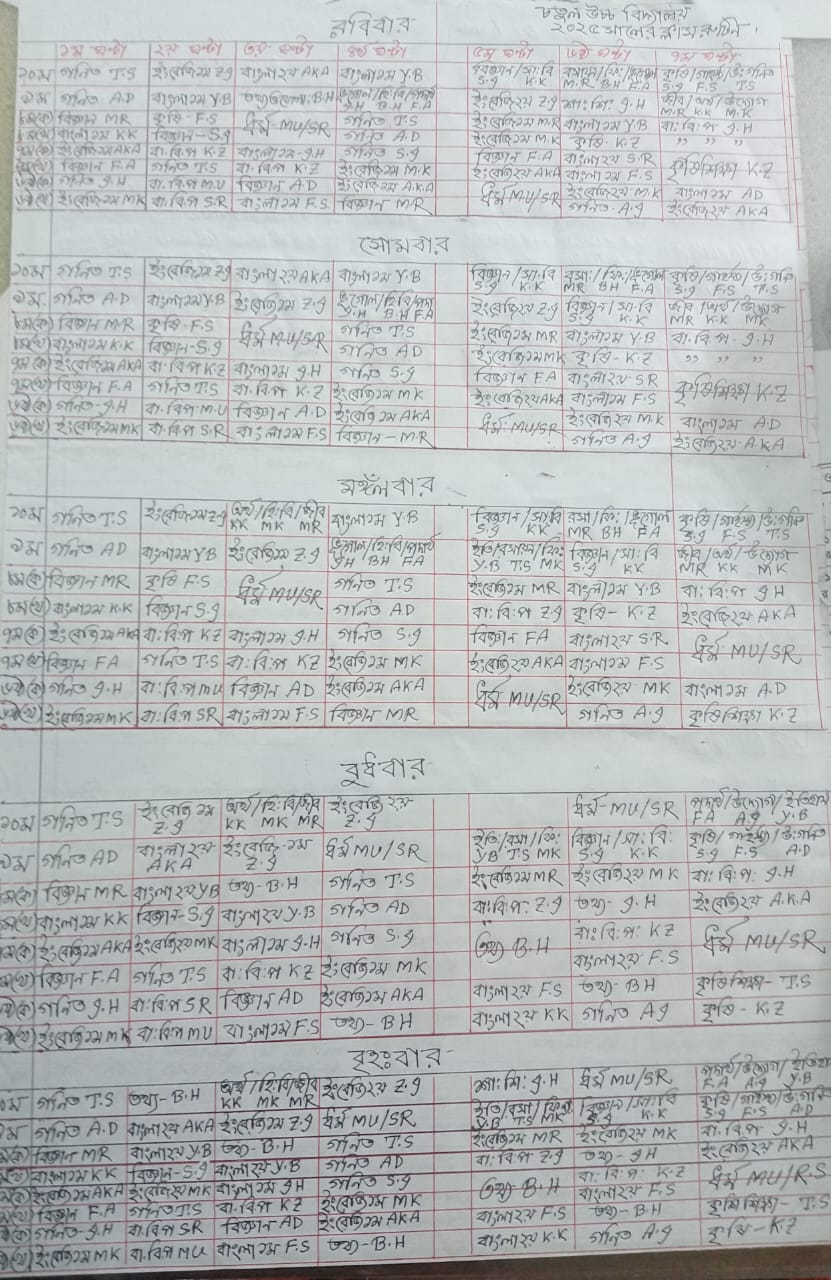 রবিবার
উচ্চ বিদ্যালয়
২০২৫ সালের ক্লাস রুটিন।
১ম ঘন্টা ২য় ঘন্টা ৩য় ঘন্টা ৪র্থ ঘন্টা ৫ম ঘন্টা ৬ষ্ঠ ঘন্টা ৭ম ঘন্টা
১০ম গনিত T.S ইংরেজি১ম Z.g বাংলা২য় AKA বাংলা১ম Y.B বিজ্ঞান/সা:বি S.g K.K রসায়ন/ফি:/ভূগোল M.R B.H F.A কৃষি/গার্হস্থ্য/উ:গনিত S.g F.S T.S
৯ম গনিত A.D বাংলা১ম Y.B B.H ভূগোল/হি:বি/পদার্থ g.H B.H F.A ইংরেজি২য় Z.g শা: শি: g.H জীব/অর্থ/উদ্যোগ M.R K.K M.K
৮ম(ক) বিজ্ঞান MR কৃষি- F.S ধর্ম-MU/SR গনিত T.S ইংরেজি১ম M.R বাংলা১ম Y.B বা: বি: প g.H
৮ম(খ) বাংলা১ম KK বিজ্ঞান-S.g গনিত A.D ইংরেজি১ম M.K কৃষি- K.Z ,, ,, ,,
৭ম(ক) ইংরেজি১ম AKA বা.বি.প K.Z বাংলা১ম-g.H গনিত S.g বিজ্ঞান F.A বাংলা২য় S.R কৃষিশিক্ষা K.Z
৭ম(খ) বিজ্ঞান F.A গনিত T.S বা.বিপ K.Z ইংরেজি১ম M.K ইংরেজি২য় AKA বাংলা১ম F.S
৬ষ্ঠ(ক) গনিত g.H বা.বিপ M.U বিজ্ঞান A.D ইংরেজি১ম A.K.A ধর্ম MU/SR ইংরেজি২য় M.K বাংলা১ম AD
৬ষ্ঠ(খ) ইংরেজি১ম MK বা.বিপ S.R বাংলা১ম F.S বিজ্ঞান M.R গনিত- A.g ইংরেজি২য় AKA
সোমবার
১০ম গনিত T.S ইংরেজি১ম Zg বাংলা২য় AKA বাংলা১ম Y.B বিজ্ঞান/সা:বি S.g K.K রসা:/ফি:/ভূগোল MR BH F.A কৃষি/গার্হস্থ্য/উ:গনিত S.g F.S T.S
৯ম গনিত A.D বাংলা১ম Y.B ইংরেজি১ম Z.g ভূগোল/হি:বি/পদার্থ g.H B.H F.A ইংরেজি২য় Z.g বিজ্ঞান/সা:বি S.g K.K জীব/অর্থ/উদ্যোগ MR K.K MK
৮ম(ক) বিজ্ঞান M.R কৃষি-F.S ধর্ম MU/SR গনিত T.S ইংরেজি১ম MR বাংলা১ম Y.B বা.বি.প. g.H
৮ম(খ) বাংলা১ম K.K বিজ্ঞান-S.g গনিত AD ইংরেজি১ম MK কৃষি- K.Z ,, ,, ,,
৭ম(ক) ইংরেজি১ম AKA বা.বিপ K.Z বাংলা১ম g.H গনিত S.g বিজ্ঞান FA বাংলা২য় SR কৃষিশিক্ষা K.Z
৭ম(খ) বিজ্ঞান F.A গনিত T.S বা.বিপ K.Z ইংরেজি১ম MK ইংরেজি২য় AKA বাংলা১ম F.S
৬ষ্ঠ(ক) গনিত-g.H বা.বিপ M.U বিজ্ঞান A.D ইংরেজি১ম AKA ধর্ম: MU/SR ইংরেজি২য় M.K বাংলা১ম A.D
৬ষ্ঠ(খ) ইংরেজি১ম MK বা.বিপ S.R বাংলা১ম F.S বিজ্ঞান-M.R গনিত A.g ইংরেজি২য় A.K.A
মঙ্গলবার
১০ম গনিত T.S ইংরেজি১ম Z.g অর্থ/হি:বি/জীব KK MK MR বাংলা১ম Y.B বিজ্ঞান/সা:বি S.g KK রসা/ফি:/ভূগোল MR BH FA কৃষি/গার্হস্থ্য/উ:গনিত S.g F.S T.S
৯ম গনিত AD বাংলা১ম YB ইংরেজি১ম Z.g ভূগোল/হি:বি/পদার্থ g.H BH FA ইতি/রসায়ন/ফি: Y.B T.S MK বিজ্ঞান/সা:বি S.g KK জীব/অর্থ/উদ্যোগ MR KK MK
৮ম(ক) বিজ্ঞান MR কৃষি F.S ধর্ম MU/SR গনিত T.S ইংরেজি১ম MR বাংলা১ম Y.B বা: বি:প gH
৮ম(খ) বাংলা১ম K.K বিজ্ঞান S.g গনিত AD বা: বি:প Z.g কৃষি- K.Z ইংরেজি২য় AKA
৭ম(ক) ইংরেজি১ম AKA বা:বি:প KZ বাংলা১ম g.H গনিত S.g বিজ্ঞান FA বাংলা২য় S.R ধর্ম MU/SR
৭ম(খ) বিজ্ঞান FA গনিত T.S বা:বি:প KZ ইংরেজি১ম MK ইংরেজি২য় AKA বাংলা১ম F.S
৬ষ্ঠ(ক) গনিত g.H বা:বি:প MU বিজ্ঞান AD ইংরেজি১ম AKA ধর্ম MU/SR ইংরেজি২য় MK বাংলা১ম A.D
৬ষ্ঠ(খ) ইংরেজি১ম MK বা:বি:প SR বাংলা১ম F.S বিজ্ঞান MR গনিত A.g কৃষিশিক্ষা K.Z
বুধবার
১০ম গনিত T.S ইংরেজি১ম Z.g অর্থ/হি:বি/জীব KK MK MR ইংরেজি২য় Z.g ধর্ম-MU/SR পদার্থ/উদ্যোগ/ইতিহাস FA A.g Y.B
৯ম গনিত AD বাংলা২য় AKA ইংরেজি-১ম Z.g ধর্ম MU/SR ইতি/রসা/ফি: YB T.S MK বিজ্ঞান/সা:বি: S.g K.K কৃষি/গার্হস্থ্য/উ:গনিত S.g F.S A.D
৮ম(ক) বিজ্ঞান MR বাংলা২য় YB তথ্য-B.H গনিত T.S ইংরেজি১ম MR ইংরেজি২য় MK বা: বি: প: g.H
৮ম(খ) বাংলা১ম KK বিজ্ঞান-S.g বাংলা২য় Y.B গনিত AD বা:বি:প: Z.g তথ্য- g.H ইংরেজি২য় A.K.A
৭ম(ক) ইংরেজি১ম AKA ইংরেজি২য় MK বাংলা১ম g.H গনিত S.g তথ্য B.H বা: বি: প: KZ ধর্ম MU/SR
৭ম(খ) বিজ্ঞান F.A গনিত T.S বা:বি:প KZ ইংরেজি১ম MK বাংলা২য় F.S
৬ষ্ঠ(ক) গনিত g.H বা:বি:প SR বিজ্ঞান AD ইংরেজি১ম AKA বাংলা২য় F.S তথ্য- BH কৃষিশিক্ষা- T.S
৬ষ্ঠ(খ) ইংরেজি১ম MK বা:বি:প MU বাংলা১ম F.S তথ্য- BH বাংলা২য় KK গনিত Ag কৃষি- K.Z
বৃহঃবার
১০ম গনিত T.S তথ্য-B.H অর্থ/হি:বি/জীব KK MK MR ইংরেজি২য় Z.g শা:শি: g.H ধর্ম MU/SR পদার্থ/উদ্যোগ/ইতিহাস F.A A.g Y.B
৯ম গনিত A.D বাংলা২য় AKA ইংরেজি১ম Z.g ধর্ম MU/SR ইতি/রসা/ফি: Y.B T.S MK বিজ্ঞান/সা:বি S.g K.K কৃষি/গার্হস্থ্য/উ:গনিত S.g F.S A.D
৮ম(ক) বিজ্ঞান MR বাংলা২য় Y.B তথ্য-B.H গনিত T.S ইংরেজি১ম MR ইংরেজি২য় MK বা.বি.প g.H
৮ম(খ) বাংলা১ম KK বিজ্ঞান-S.g বাংলা২য় Y.B গনিত AD বা:বি:প Z.g তথ্য- gH ইংরেজি২য় AKA
৭ম(ক) ইংরেজি১ম AKA ইংরেজি২য় MK বাংলা১ম gH গনিত S.g তথ্য-B.H বা: বি: প: K.Z ধর্ম MU/R.S
৭ম(খ) বিজ্ঞান F.A গনিত T.S বা.বিপ KZ ইংরেজি১ম MK বাংলা২য় F.S
৬ষ্ঠ(ক) গনিত-g.H বা.বিপ SR বিজ্ঞান AD ইংরেজি১ম AKA বাংলা২য় F.S তথ্য-B.H কৃষি শিক্ষা- T.S
৬ষ্ঠ(খ) ইংরেজি১ম MK বা.বিপ MU বাংলা১ম F.S তথ্য-B.H বাংলা২য় K.K গনিত A.g কৃষি-K.Z